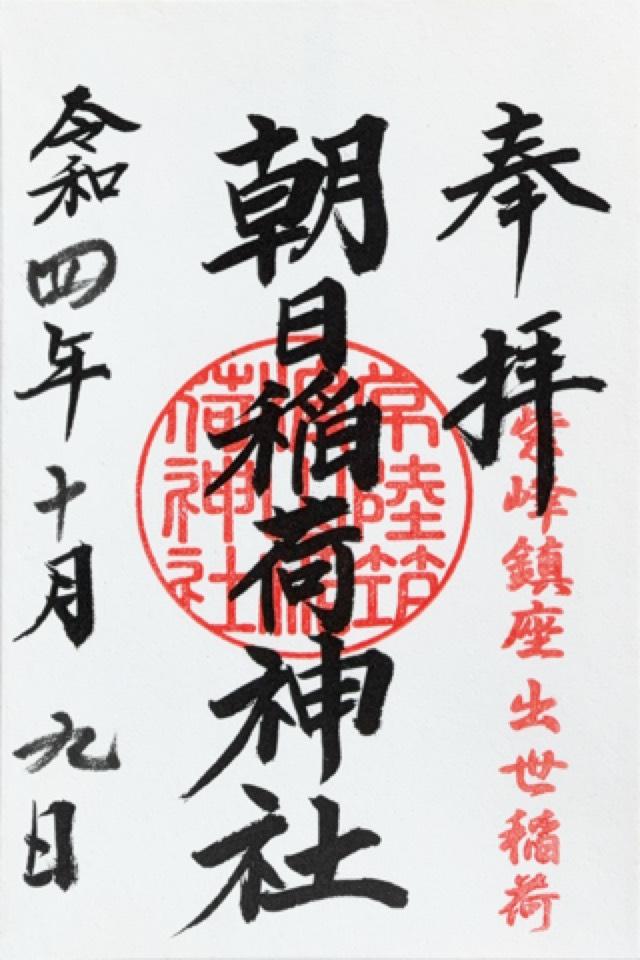 奉拝
紫峰鎮座 出世稲荷
朝日稲荷神社
常陸筑
荷神社
令和四年十月九日